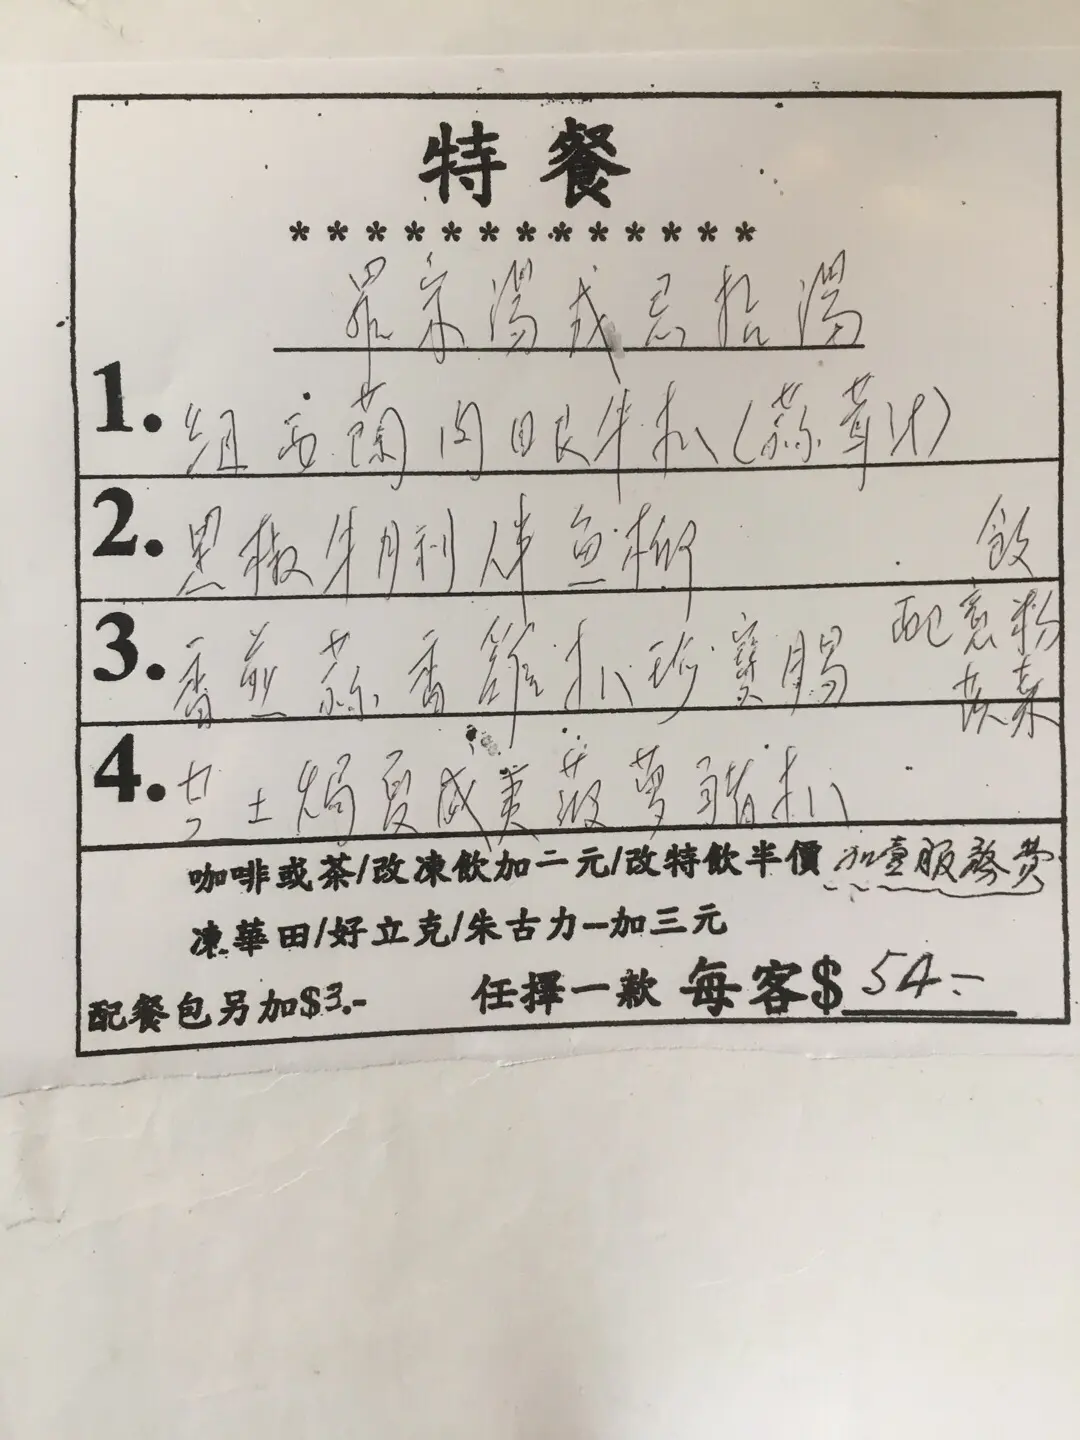 特餐
* * * * * * * * * * * * *
羅宋湯或忌拾湯
1. 紐西蘭肉眼牛扒(蒜茸汁)
2. 黑椒牛脷伴魚柳
3. 香煎蒜香雞扒珍寶腸
4. 芝士焗夏威夷菠蘿豬扒
飯
配意粉
蔬菜
咖啡或茶/改凍飲加二元/改特飲半價 加壹服務費
凍華田/好立克/朱古力—加三元
配餐包另加$3.- 任擇一款 每客$54.-